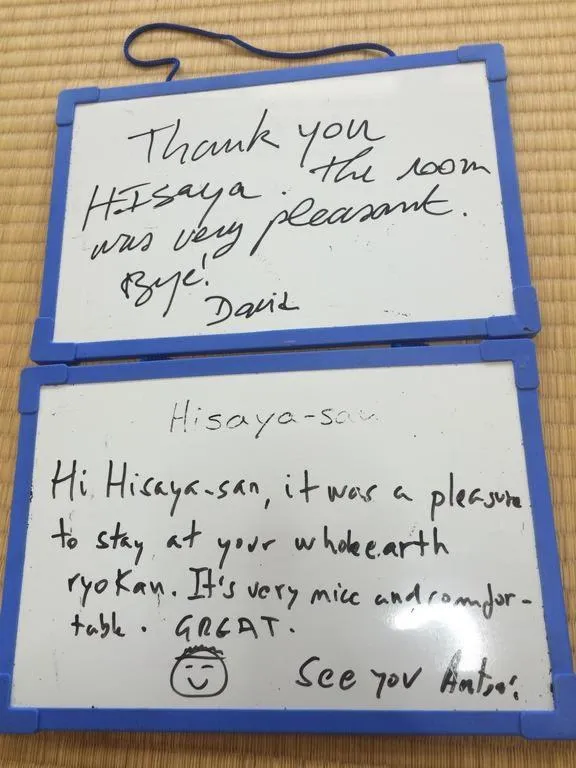 Thank you
HISaya. The room
was very pleasant.
Bye!
David
Hisaya-san
Hi Hisaya-san, it was a pleasure
to stay at your wholeearth
ryokan. It's very nice and comfor-
table. GREAT.
See you